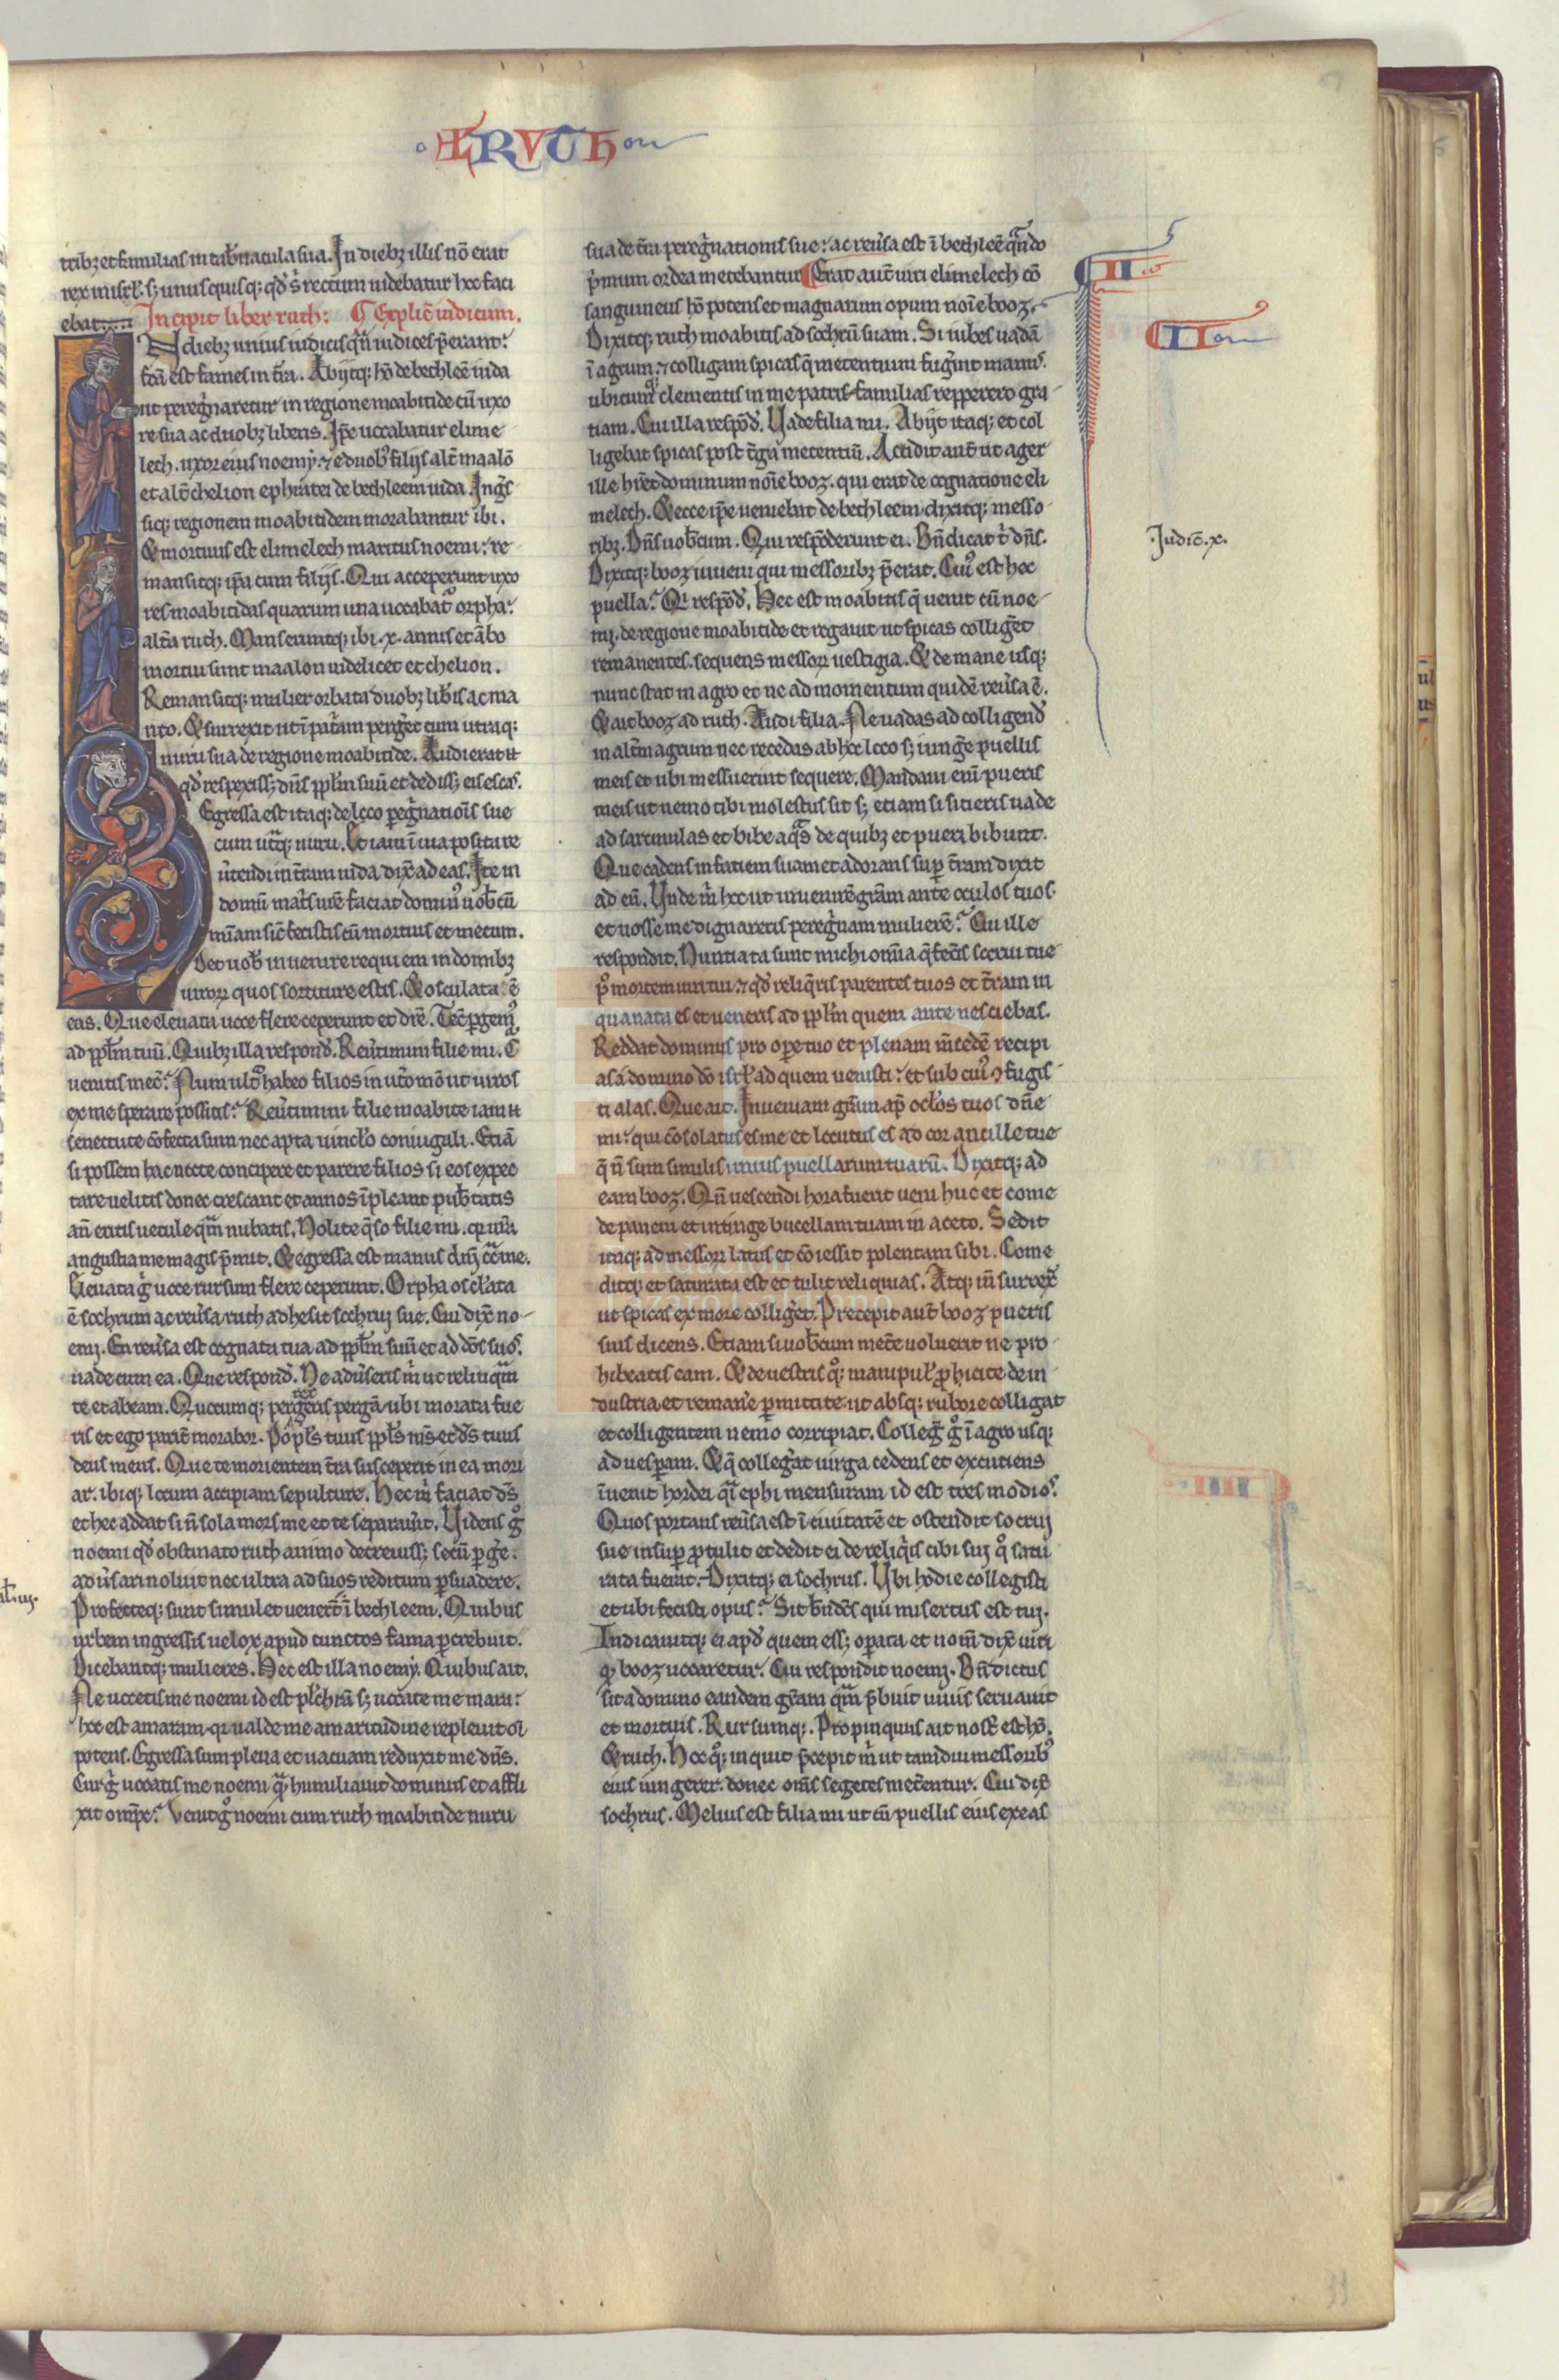 RVTH
tribȝ et familias in tab̉nacula sua. In diebȝ illis nō erat
rex in isrł. sȝ unusquisqȝ qđ s̉ rectum uidebatur hoc faci
ebat. Incipit liber ruth: ¶ Explic̄ iudicum.
N diebȝ unius iudicis qn̄ iudices p̄erant:
fc̄a est fames in t̉ra. Abijtqȝ hō de bethleē iuda
ut peregͥnaretur in regione moabitide cū uxo
re sua ac duobȝ liberis. Ip̄e uocabatur elime
lech. uxor eius noemy: ⁊ e duobȝ filijs alt̉ maalō
et alt̉ chelion ephratei de bethleem iuda. Ingͣs
siqȝ regionem moabitidem morabantur ibi.
Et mortuus est elimelech maritus noemi: re
mansitqȝ ip̄a cum filijs. Qui acceperunt uxo
res moabitidas quarum una uocabat᷑ orpha:
alt̉a ruth. Manseruntqȝ ibi .x. annis et ābo
mortui sunt maalon uidelicet et chelion.
Remansitqȝ mulier orbata duobȝ lib̉is ac ma
rito. Et surrexit ut ī patͥam perg̉et cum utraqȝ
nuru sua de regione moabitide. Audierat n̄
qđ respexissȝ dn̄s ppłm suū et dedissȝ eis escas.
Egressa est itaqȝ de loco pegͥnatiōis sue
cum utͣqȝ nuru. Et iam ī uia posita re
ủtendi in t̉ram iuda dix̄ ad eas. Ite in
domū matͥs ur̄e faciat dominꝰ uob̄cū
mīam sic̄ fecistis cū mortuis et mecum.
Det uob̄ inuenire requiem in domibȝ
uiroꝝ quos sortiture estis. Et osculata ē
eas. Que eleuata uoce flere ceperunt et dic̄e. Tec̄ pgemꝰ
ad ppłm tuū. Quibȝ illa respond̄. Reủtimini filie mi. C̉
uenitis mec̄? Num ultͣ habeo filios in ut̉o mō ut uiros
ex me sperare possitis? Reủtimini filie moabite iam n̄
senectute ꝯfecta sum nec apta uincło coniugali. Etiā
si possem hac nocte concipere et parere filios si eos expec
tare uelitis donec crescant et annos īpleant pub̉tatis
an̄ eritis uetule qͣm nubatis. Nolite q̄so filie mi. qꝛ ur̄a
angustia me magis p̄mit. Et egressa est manus dn̄j cͣ me.
Eleuata gͥ uoce rursum flere ceperunt. Orpha oscłata
ē socrum ac reủsa. ruth adhesit socrui sue. Cui dix̄ no-
emi. En reủsa est cognata tua ad ppłm suū et ad dōs suos.
uade cum ea. Que respond̄. Ne adủseris m̄ ut relinqͣm
te et abeam. Quocumqȝ perrexeris pergā. ubi morata fue
ris et ego parit̉ morabor. Popłs tuus ppłs m̄s et ds̄ tuus
deus meus. Que te morientem t̉ra susceperit in ea mori
ar. ibiqȝ locum accipiam sepulture. Hec m̄ faciat ds̄
et hec addat si n̄ sola mors me et te separaủit. Uidens gͦ
noemi qđ obstinato ruth animo decreuissȝ secū pg̉e.
adủsari noluit nec ultra ad suos reditum psuadere.
Profecteqȝ sunt simul et uenert̄ ī bethleem. Quibus
urbem ingressis uelox apud cunctos fama pcrebuit.
Dicebantqȝ mulieres. Hec est illa noemy. Quibus ait.
Ne uocetis me noemi id est płchrā sȝ uocate me mara:
hoc est amaram. qꝛ ualde me amaritudine repleuit oı̄
potens. Egressa sum plena et uacuam reduxit me dn̄s.
Cur gͥ uocatis me noemi qͣ humiliauit dominus et affli
xit om̄ps? Uenit gͦ noemi cum ruth moabitide nuru
sua de t̉ra peregͥnationis sue: ac reủsa est ī bethleē qͣndo
pͥmum ordea metebantur ¶ Erat aut̄ uiri elimelech cō
sanguineus hō potens et magnarum opum noīe booȝ.
Dixitqȝ ruth moabitis ad socrū suam. Si iubes uadā
ī agrum: ⁊ colligam spicas q̄ metentium fug̉int manus.
ubicumqȝ clementis in me patris familias reppero gra
tiam. Cui illa respōd̄. Uade filia mi. Abijt itaqȝ et col
ligebat spicas post t̉ga metentiū. Accidit aut̄ ut ager
ille hr̄et dominum noīe booȝ. qui erat de cognatione eli
melech. Et ecce ip̄e ueniebat de bethleem. dixitqȝ messo
ribȝ. Dn̄s uobcum. Qui respōderunt ei. Bn̄dicat t̄ dn̄s.
Dixitqȝ booȝ iuueni qui messoribȝ p̄erat. Cuiꝰ est hec
puella? Qͥ respōd̄. Hec est moabitis q̄ uenit cū noe
mi. de regione moabitide et rogauit ut spicas collig̉et
remanentes. sequens messoꝝ uestigia. Et de mane usqȝ
nunc stat in agro et ne ad momentum quidē reủsa ē.
Et ait booȝ ad ruth. Audi filia. Ne uadas ad colligend̄
in alt̉m agrum nec recedas ab hoc loco sȝ iung̉e puellis
meis et ubi messuerint sequere. Mandaui enī pueris
meis ut nemo tibi molestus sit sȝ etiam si sitieris uade
ad sarcinulas et bibe aqͣs de quibȝ et pueri bibunt.
Que cadens in faciem suam et adorans sup t̉ram dixit
ad eū. Unde m̄ hoc ut inuenirē grām ante oculos tuos.
et nosse me dignareris peregͥnam mulierē? Cui ille
respondit. Nuntiata sunt michi om̄ia q̄ fec̉is socrui tue
pꝰ mortem uiri tui: ⁊ qđ reliqͥris parentes tuos et t̉ram in
qua nata es et ueneris ad ppłm quem ante nesciebas.
Reddat dominus pro ope tuo et plenam m̉cedē recipi
as a domino dō isrł ad quem uenisti: et sub cuiꝰ ꝯfugis
ti alas. Que ait. Inueniam grām ap̄ ocłos tuos dn̄e
mi: qui cōsolatus es me et locutus es ad cor ancille tue
q̄ n̄ sum similis unius puellarum tuarū. Dixitqȝ ad
eam booȝ. Qn̄ uescendi hora fuerit ueni huc et come
de panem et intinge bucellam tuam in aceto. Sedit
itaqȝ ad messoꝝ latus et cōiessit polentam sibi. Come
ditqȝ et saturata est et tulit reliquias. Atqȝ in̄ surrex̄
ut spicas ex more collig̉et. Precepit aut̄ booȝ pueris
suis dicens. Etiam si uob̄cum met̉e uoluerit ne pro
hibeatis eam. Et de uestris qͦqȝ manipuł prohicite de in
dustria. et reman̉e pmittite. ut absqȝ rubore colligat
et colligentem nemo corripiat. Colleg̉ gͦ ī agro usqȝ
ad uespam. Et q̄ colleg̉at uirga cedens et excutiens
īuenit hordei qͣi ephi mensuram id est tres modios.
Quos portans reủsa est ī ciuitatē et ostendit socrui
sue insup ꝓtulit et dedit ei de reliqͥis cibi sui qͦ satu
rata fuerat. Dixitqȝ ei sochrus. Ubi hodie collegisti
et ubi fecisti opus? Sit bn̄dc̄s qui misertus est tui.
Indicauitqȝ ei apđ quem essȝ operata et nom̄ dix̄ uiri
qꝫ booȝ uocaretur. Cui respondit noemi. Bn̄dictus
sit a domino eandem grām qͣm p̄buit uiuis seruauit
et mortuis. Rursumqȝ. Propinquus ait nost̉ est hō.
Et ruth. Hoc qͦqȝ inquit p̄cepit m̄ ut tamdiu messoribȝ
eius iungerer. donec om̄s segetes met̉entur. Cui dix̄
sochrus. Melius est filia mi ut cū puellis eius exeas
II
II
Iudic̄.x.